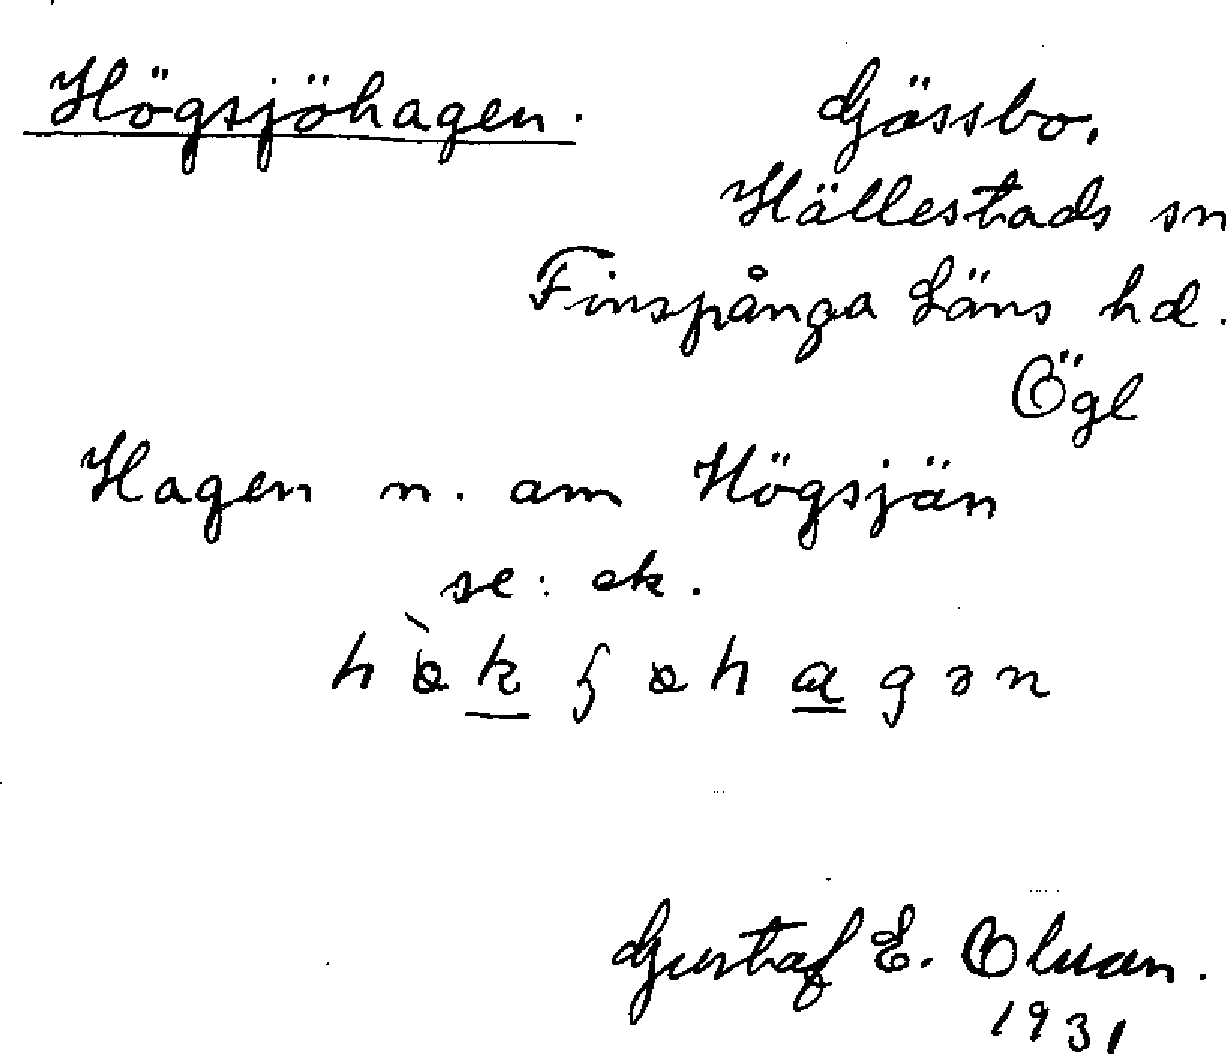 Högsjöhagen. Gössbo,
Hällestads sn
Finspånga Läns hd.
Ögl
Hagen n. om Högsjön
se: ek.
Gustaf E. Olson.
1931